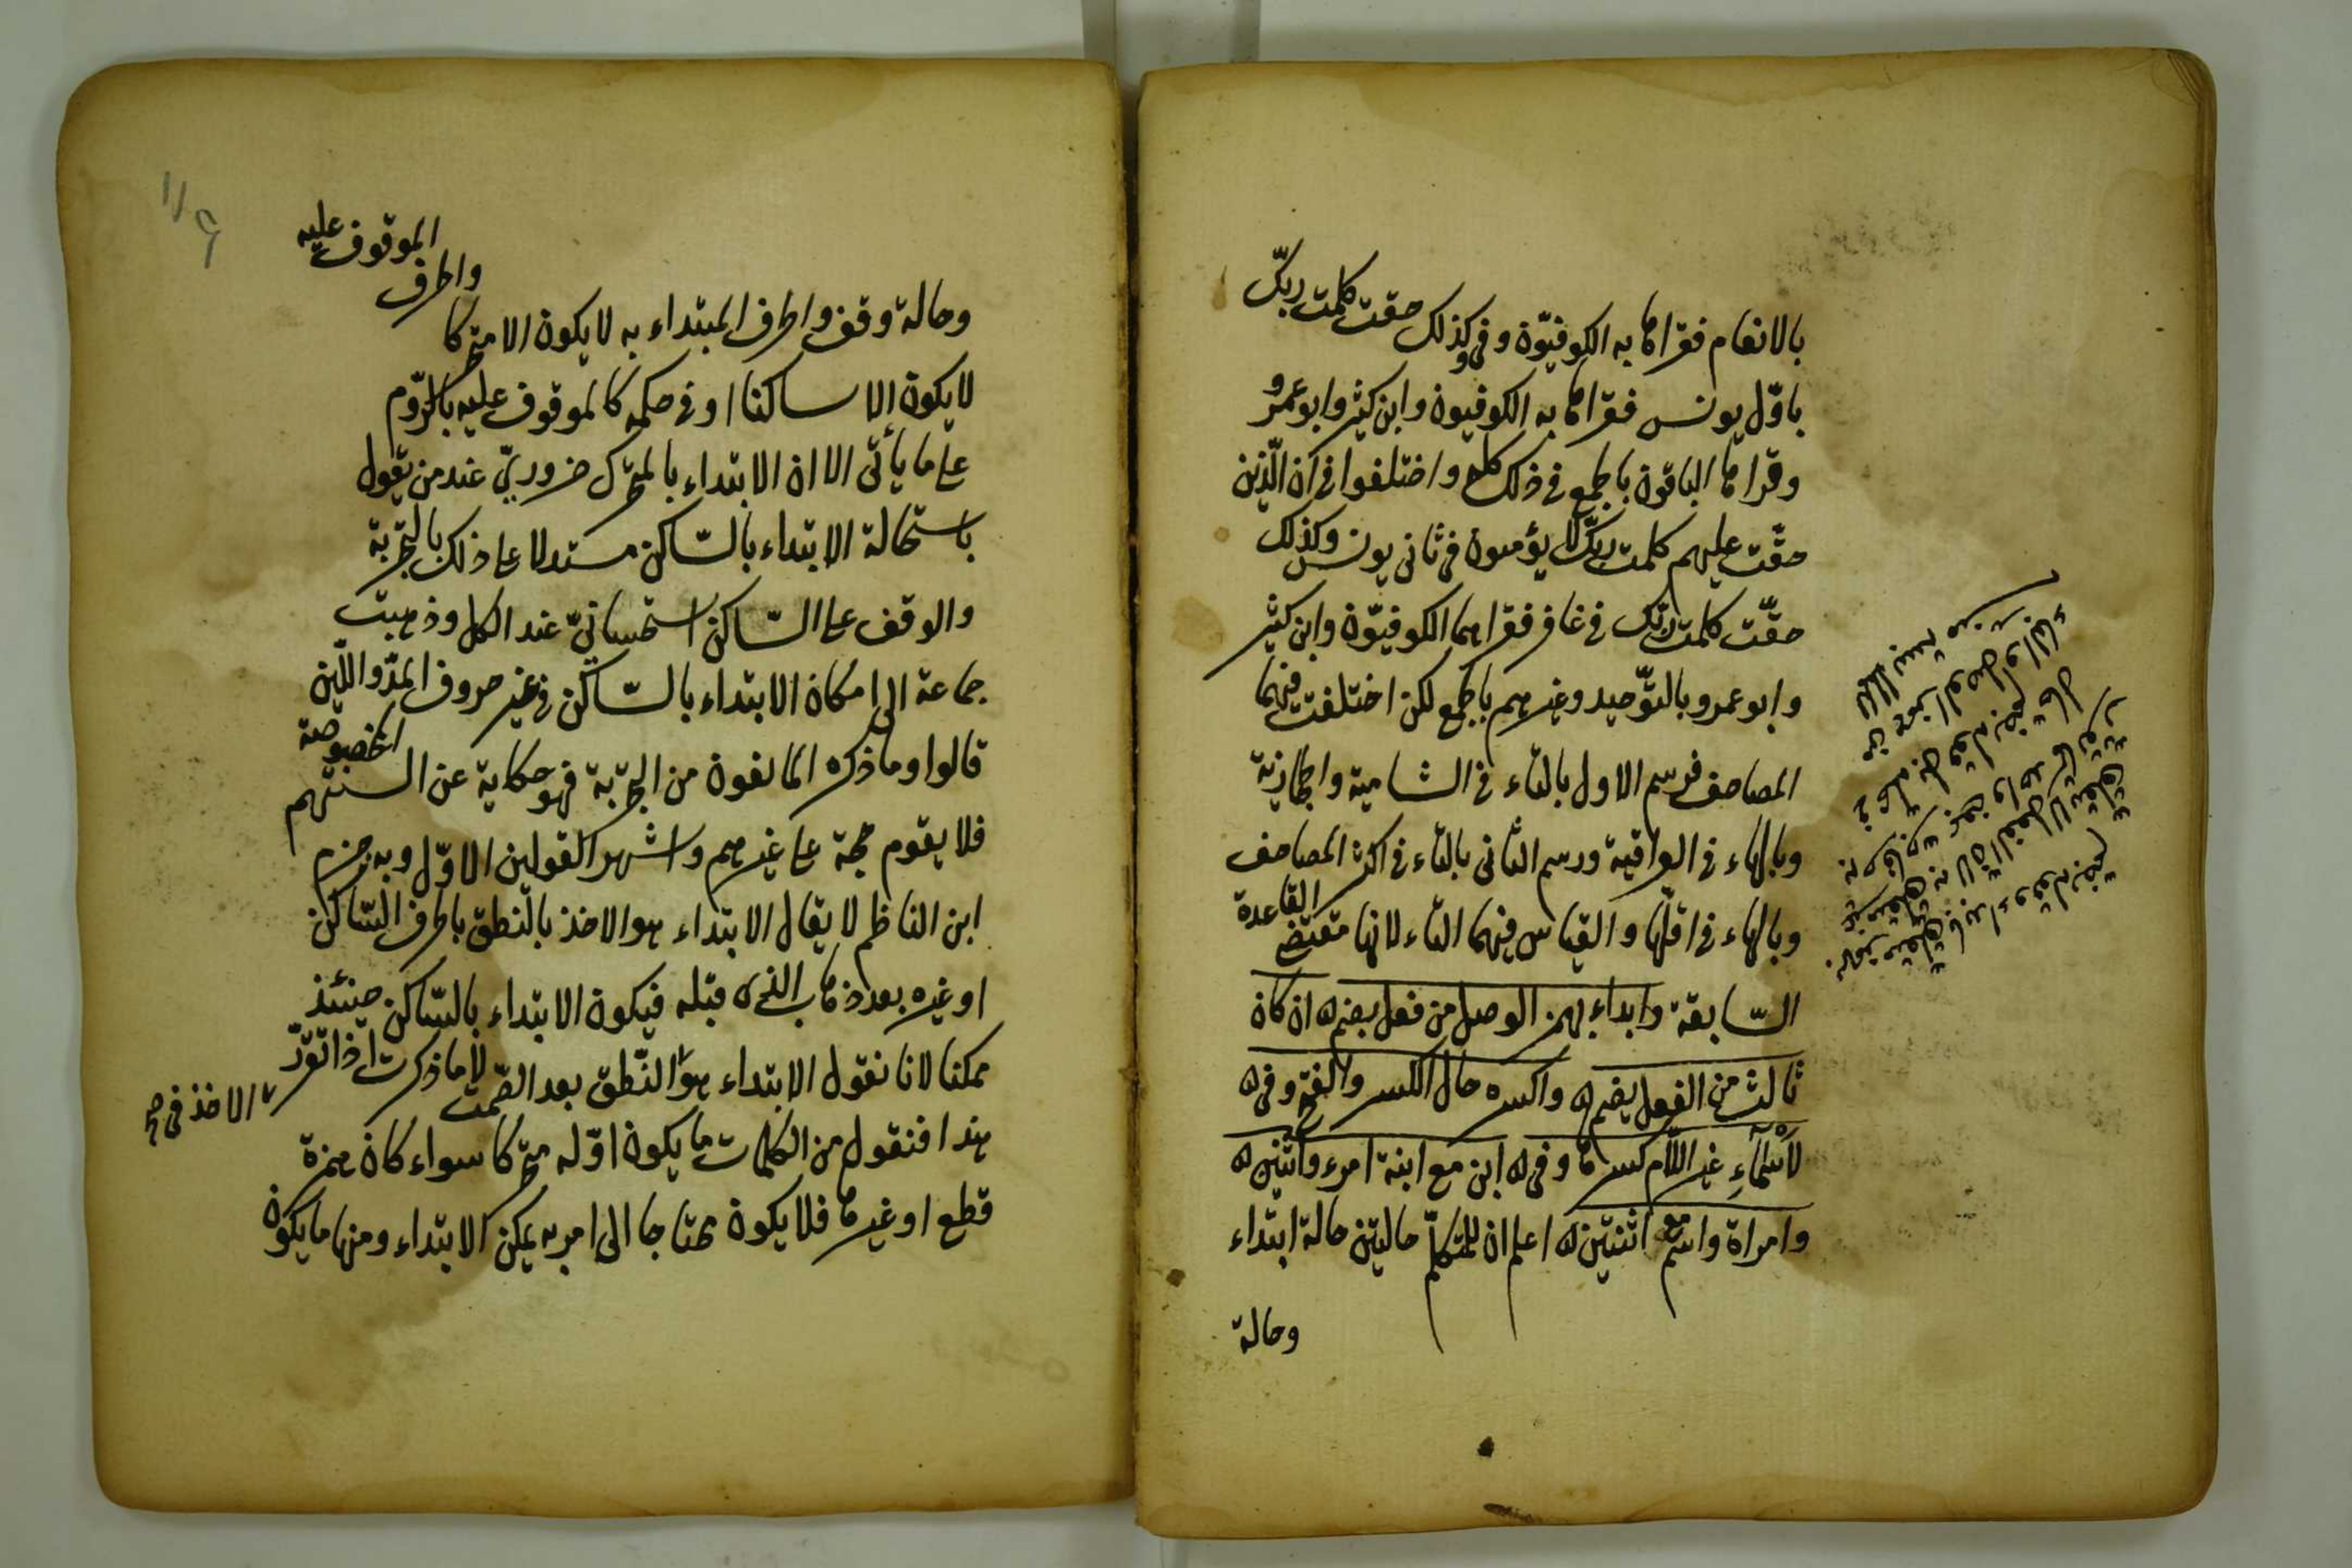 بالانعام فقراها به الكوفيّون وفى وكذلك حقت كلمت ربّك
باوّل يونس فقراها به الكوفيون وابن كثير وابو عمرو
وقراها الباقون بالجمع فى ذلك كله واختلفوا فى ان الّذين
حقّت عليهم كلمت ربّك لا يؤمنون فى ثانى يونس وكذلك
حقّت كلمت ربّك فى غافر فقراهما الكوفيّون وابن كثير
وابو عمرو بالتّوحيد وغيرهم بالجمع لكن اختلفت فيهما
المصاحف فرسم الاول بالتاء فى الشامية والحجازية
وبالهاء فى العراقية ورسم الثانى بالتاء فى اكثر المصاحف
وبالهاء فى اقلّها والقياس فيهما التاء لانها مقتضى القاعدة
السّابقة وابداء بهمز الوصل من فعل بضم ان كان
ثالث من الفعل يضم واكسره حال الكسر والفتح وفى
لاسماء غير اللام كسرها وفى ابن مع ابنة امرء واثنين
وامراة واسم مع اثنتين اعلم ان للمتكلّم حالتين حالة ابتداء
وحالة
وحالة وقف والحرف المبتداء به لا يكون الا متحركا
والحرف الموقوف عليه
لا يكون الا ساكنا او فى حكمه كالموقوف عليه بالرّوم
على ما يأتى الا ان الابتداء بالمتحرك ضروريّ عند من يقول
باستحالة الابتداء بالسّاكن مستدلا على ذلك بالتجربة
والوقف على السّاكن استحسانيّ عند الكل وذهبت
جماعة الى امكان الابتداء بالسّاكن فى غير حروف المدّ واللّين
قالوا وما ذكره المخالفون من التجربة فهو حكاية عن السنتهم المخصوصة
فلا يقوم حجة على غيرهم واشهر القولين الاوّل وبه جزم
ابن الناظم لا يقال الابتداء هو الاخذ بالنطق بالحرف السّاكن
او غيره بعد ذهاب الذى قبله فيكون الابتداء بالسّاكن حينئذ
ممكنا لانا نقول الابتداء هو النّطق بعد الصّمت لا ما ذكرت اذا تقرّر
الاخذ فى
هذا فنقول من الكلمات ما يكون اوّله متحركا سواء كان همزة
قطع او غيرها فلا يكون محتاجا الى امر به يمكن الابتداء ومنها ما يكون